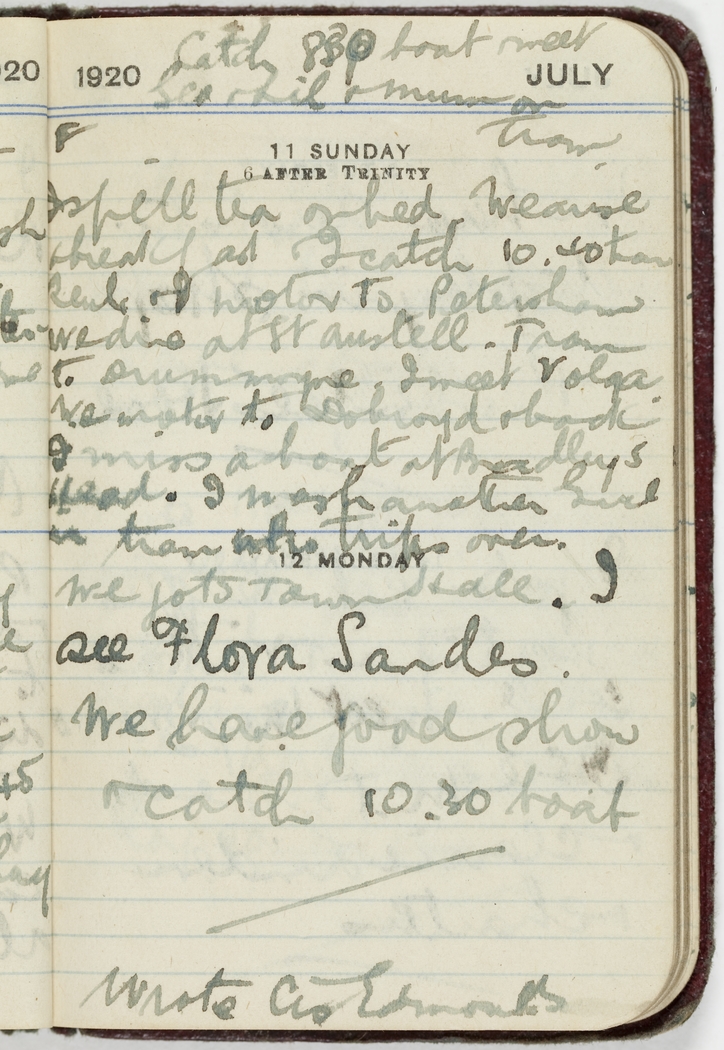 20
1920
JULY
Catch 830 boat meet
& Mum on
tram.
11 SUNDAY
6 AFTER TRINITY
I spill tea on bed. We
breakfast I catch 10.40 tram
& I motor to Petersham
we dine at St Austell. Tram
to Drummoyne. I meet Volga.
We motor to Dobroyd & back
I miss a boat at Bradleys
Head. I mash another Girl
in tram who trips over.
12 MONDAY
We go to Town Hall. I
see Flora Sandes.
We have good show
& catch 10.30 boat
Wrote Cis Edmonds
45